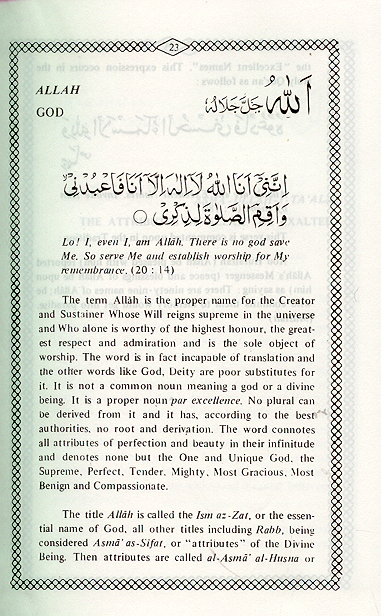 23
ALLAH
GOD
اَللّٰهُ جَلَّ جَلَالُهُ
اِنَّنِيْٓ اَنَا اللّٰهُ لَآ اِلٰهَ اِلَّآ اَنَا فَاعْبُدْنِيْ
وَاَقِمِ الصَّلٰوةَ لِذِكْرِيْ ○
Lo! I, even I, am Allāh. There is no god save
Me. So serve Me and establish worship for My
remembrance. (20 : 14)
The term Allāh is the proper name for the Creator
and Sustainer Whose Will reigns supreme in the universe
and Who alone is worthy of the highest honour, the great-
est respect and admiration and is the sole object of
worship. The word is in fact incapable of translation and
the other words like God, Deity are poor substitutes for
it. It is not a common noun meaning a god or a divine
being. It is a proper noun par excellence. No plural can
be derived from it and it has, according to the best
authorities, no root and derivation. The word connotes
all attributes of perfection and beauty in their infinitude
and denotes none but the One and Unique God, the
Supreme, Perfect, Tender, Mighty, Most Gracious, Most
Benign and Compassionate.
The title Allāh is called the Ism az-Zat, or the essen-
tial name of God, all other titles including Rabb, being
considered Asmā' as-Sifat, or "attributes" of the Divine
Being. Then attributes are called al-Asmā' al-Husna or